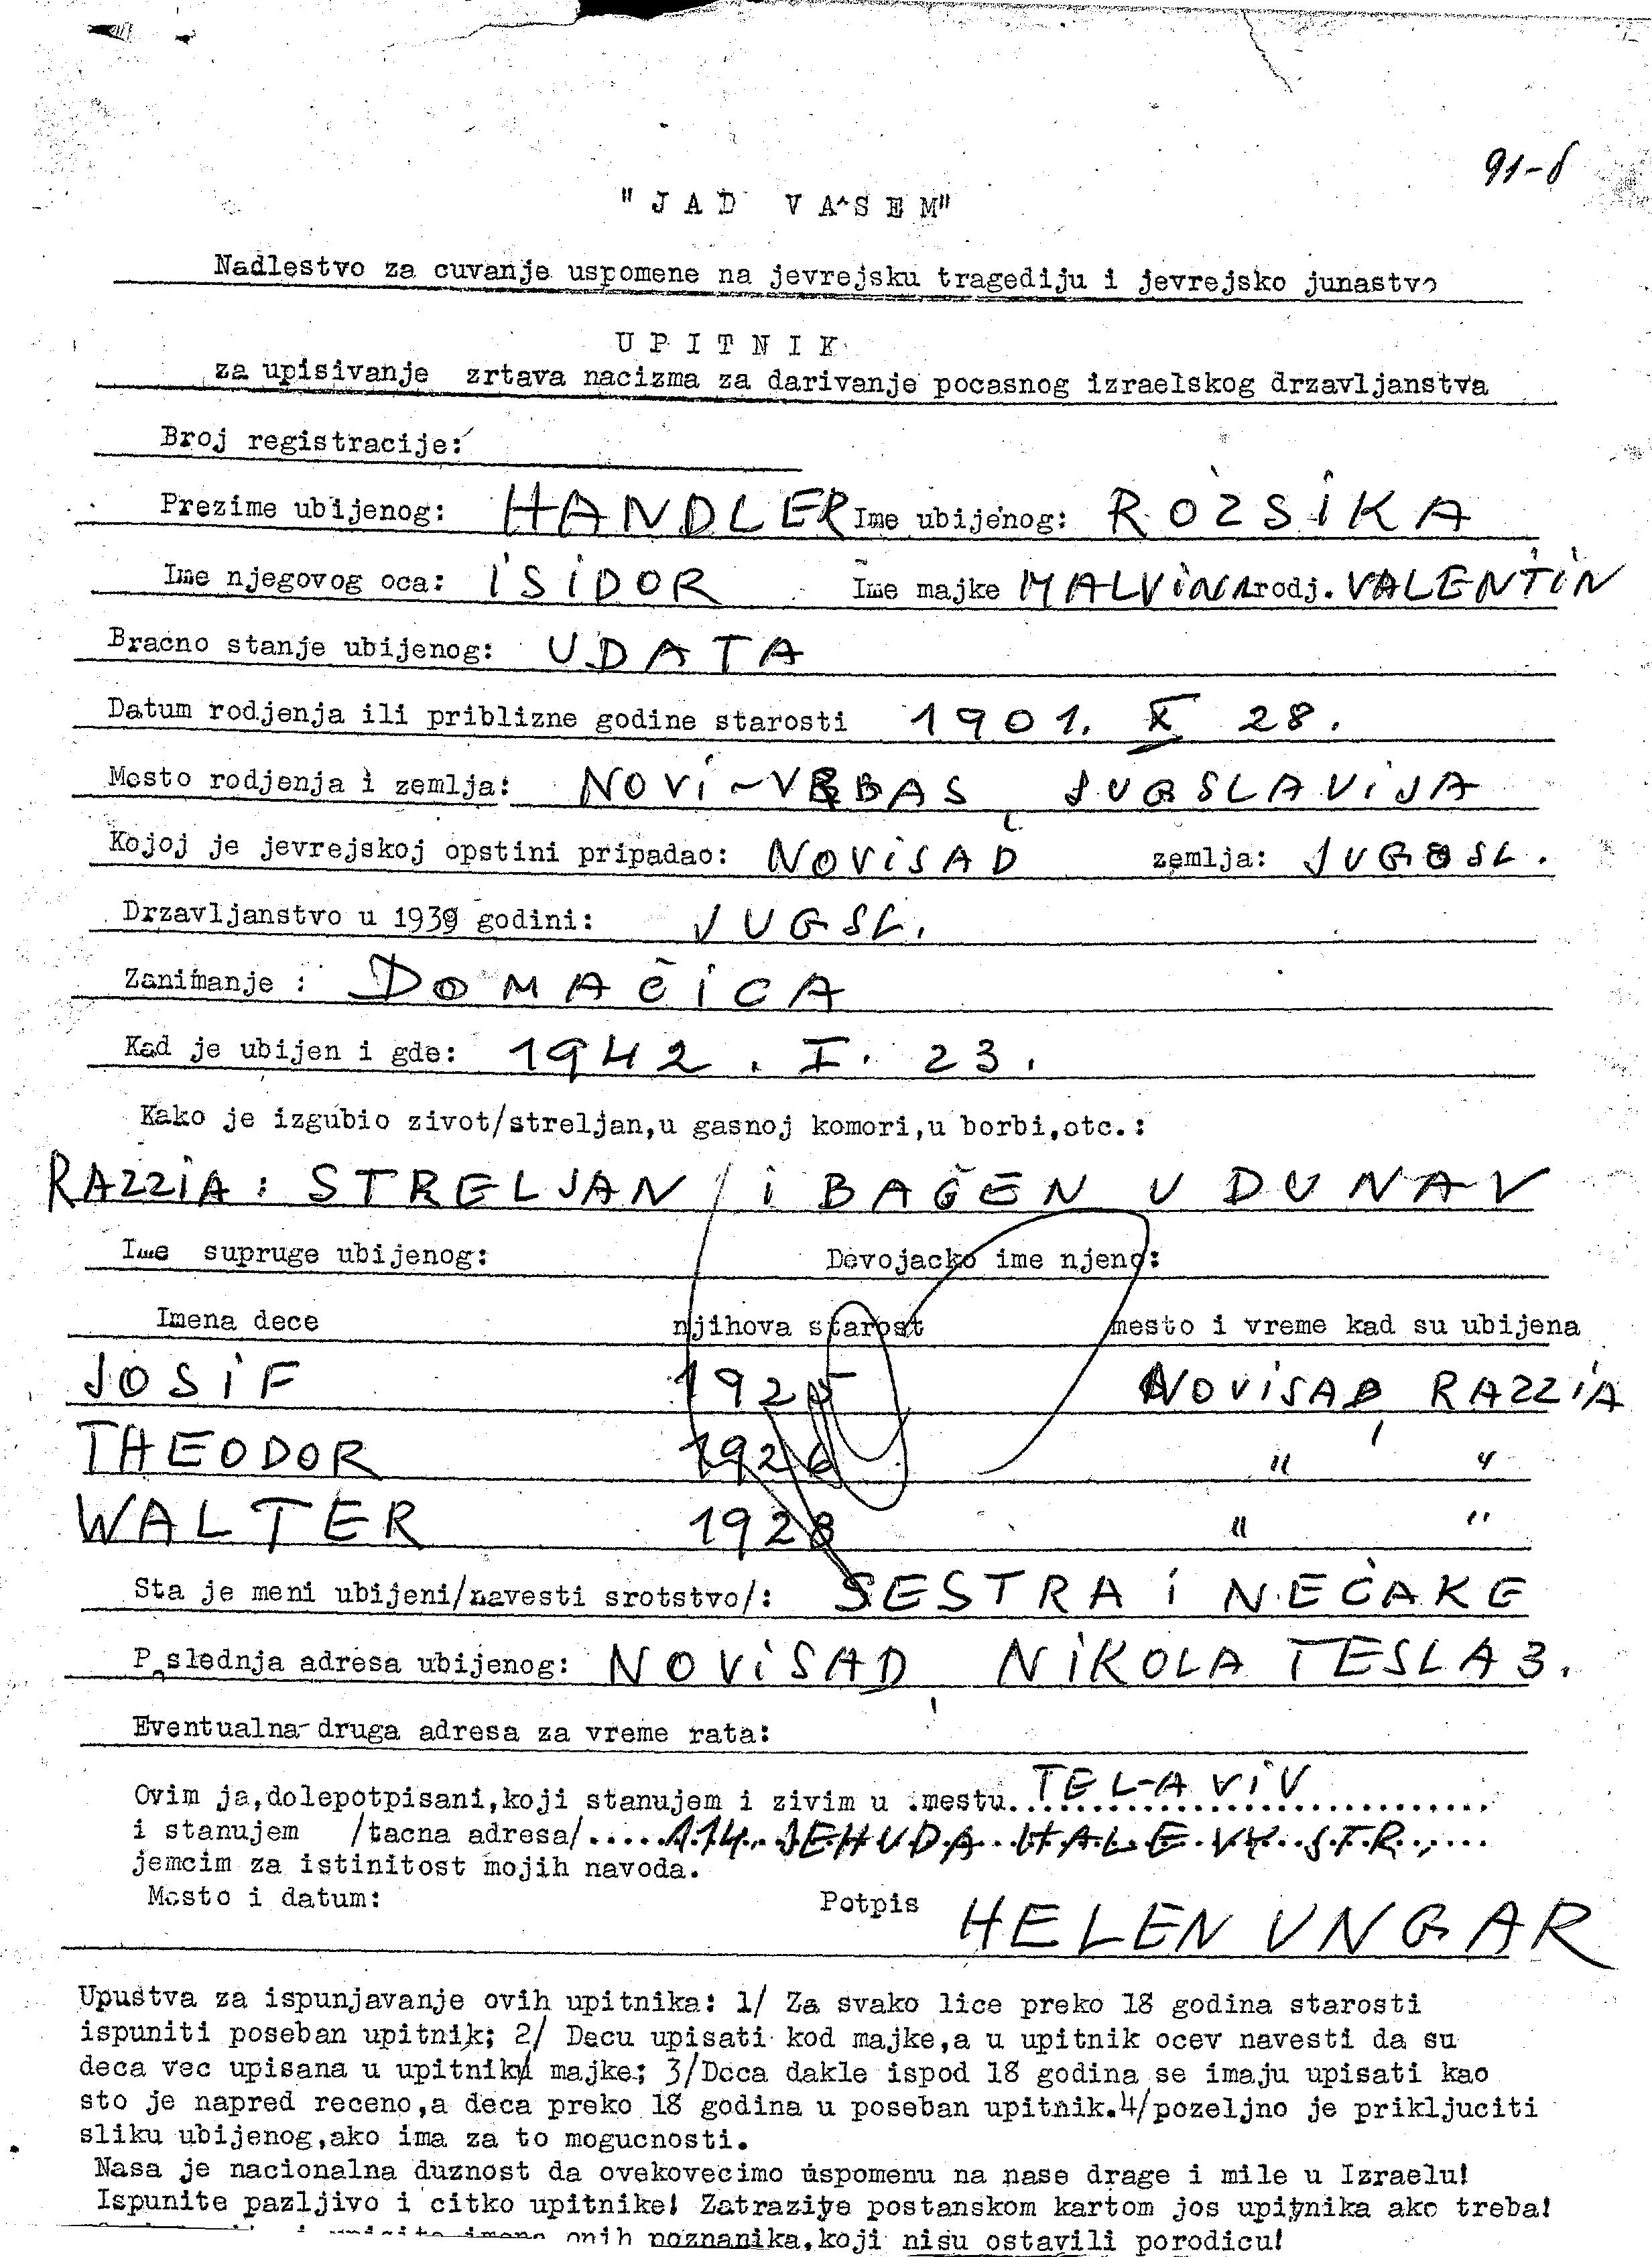 91-8
"JAD VA^SEM"
Nadlestvo za cuvanje uspomene na jevrejsku tragediju i jevrejsko junastvo
UPITNIK
za upisivanje zrtava nacizma za darivanje pocasnog izraelskog drzavljanstva
Broj registracije:
Prezime ubijenog: HANDLER Ime ubijenog: ROZSIKA
Ime njegovog oca: ISIDOR Ime majke MALVINA rodj. VALENTIN
Bracno stanje ubijenog: UDATA
Datum rodjenja ili priblizne godine starosti 1901. X 28.
Mesto rodjenja i zemlja: NOVI-VRBAS, JUGSLAVIJA
Kojoj je jevrejskoj opstini pripadao: NOVISAD zemlja: JUGOSL.
Drzavljanstvo u 1939 godini: JUGSL.
Zanimanje : DOMAČICA
Kad je ubijen i gde: 1942. I. 23.
Kako je izgubio zivot/streljan,u gasnoj komori,u borbi,otc.:
RAZZIA: STRELJAN / i BAČEN U DUNAV
Ime supruge ubijenog: Devojacko ime njeno:
Imena dece njihova starost mesto i vreme kad su ubijena
JOSIF 1925 NOVISAD, RAZZIA
THEODOR 1926 " "
WALTER 1928 " "
Sta je meni ubijeni/navesti srotstvo/: SESTRA i NEĆAKE
Poslednja adresa ubijenog: NOVISAD, NIKOLA TESLA 3.
Eventualna druga adresa za vreme rata:
Ovim ja,dolepotpisani,koji stanujem i zivim u mestu TEL-AVIV
i stanujem /tacna adresa/ 114. JEHUDA HALEVY STR.
jemcim za istinitost mojih navoda.
Mesto i datum: Potpis HELEN UNGAR
Upustva za ispunjavanje ovih upitnika: 1/ Za svako lice preko 18 godina starosti
ispuniti poseban upitnik; 2/ Decu upisati kod majke,a u upitnik ocev navesti da su
deca vec upisana u upitniku majke; 3/Doca dakle ispod 18 godina se imaju upisati kao
sto je napred receno,a deca preko 18 godina u poseban upitnik.4/pozeljno je prikljuciti
sliku ubijenog,ako ima za to mogucnosti.
Nasa je nacionalna duznost da ovekovecimo uspomenu na nase drage i mile u Izraelu!
Ispunite pazljivo i citko upitnike! Zatrazite postanskom kartom jos upitnika ako treba!
onih poznanika,koji nisu ostavili porodicu!